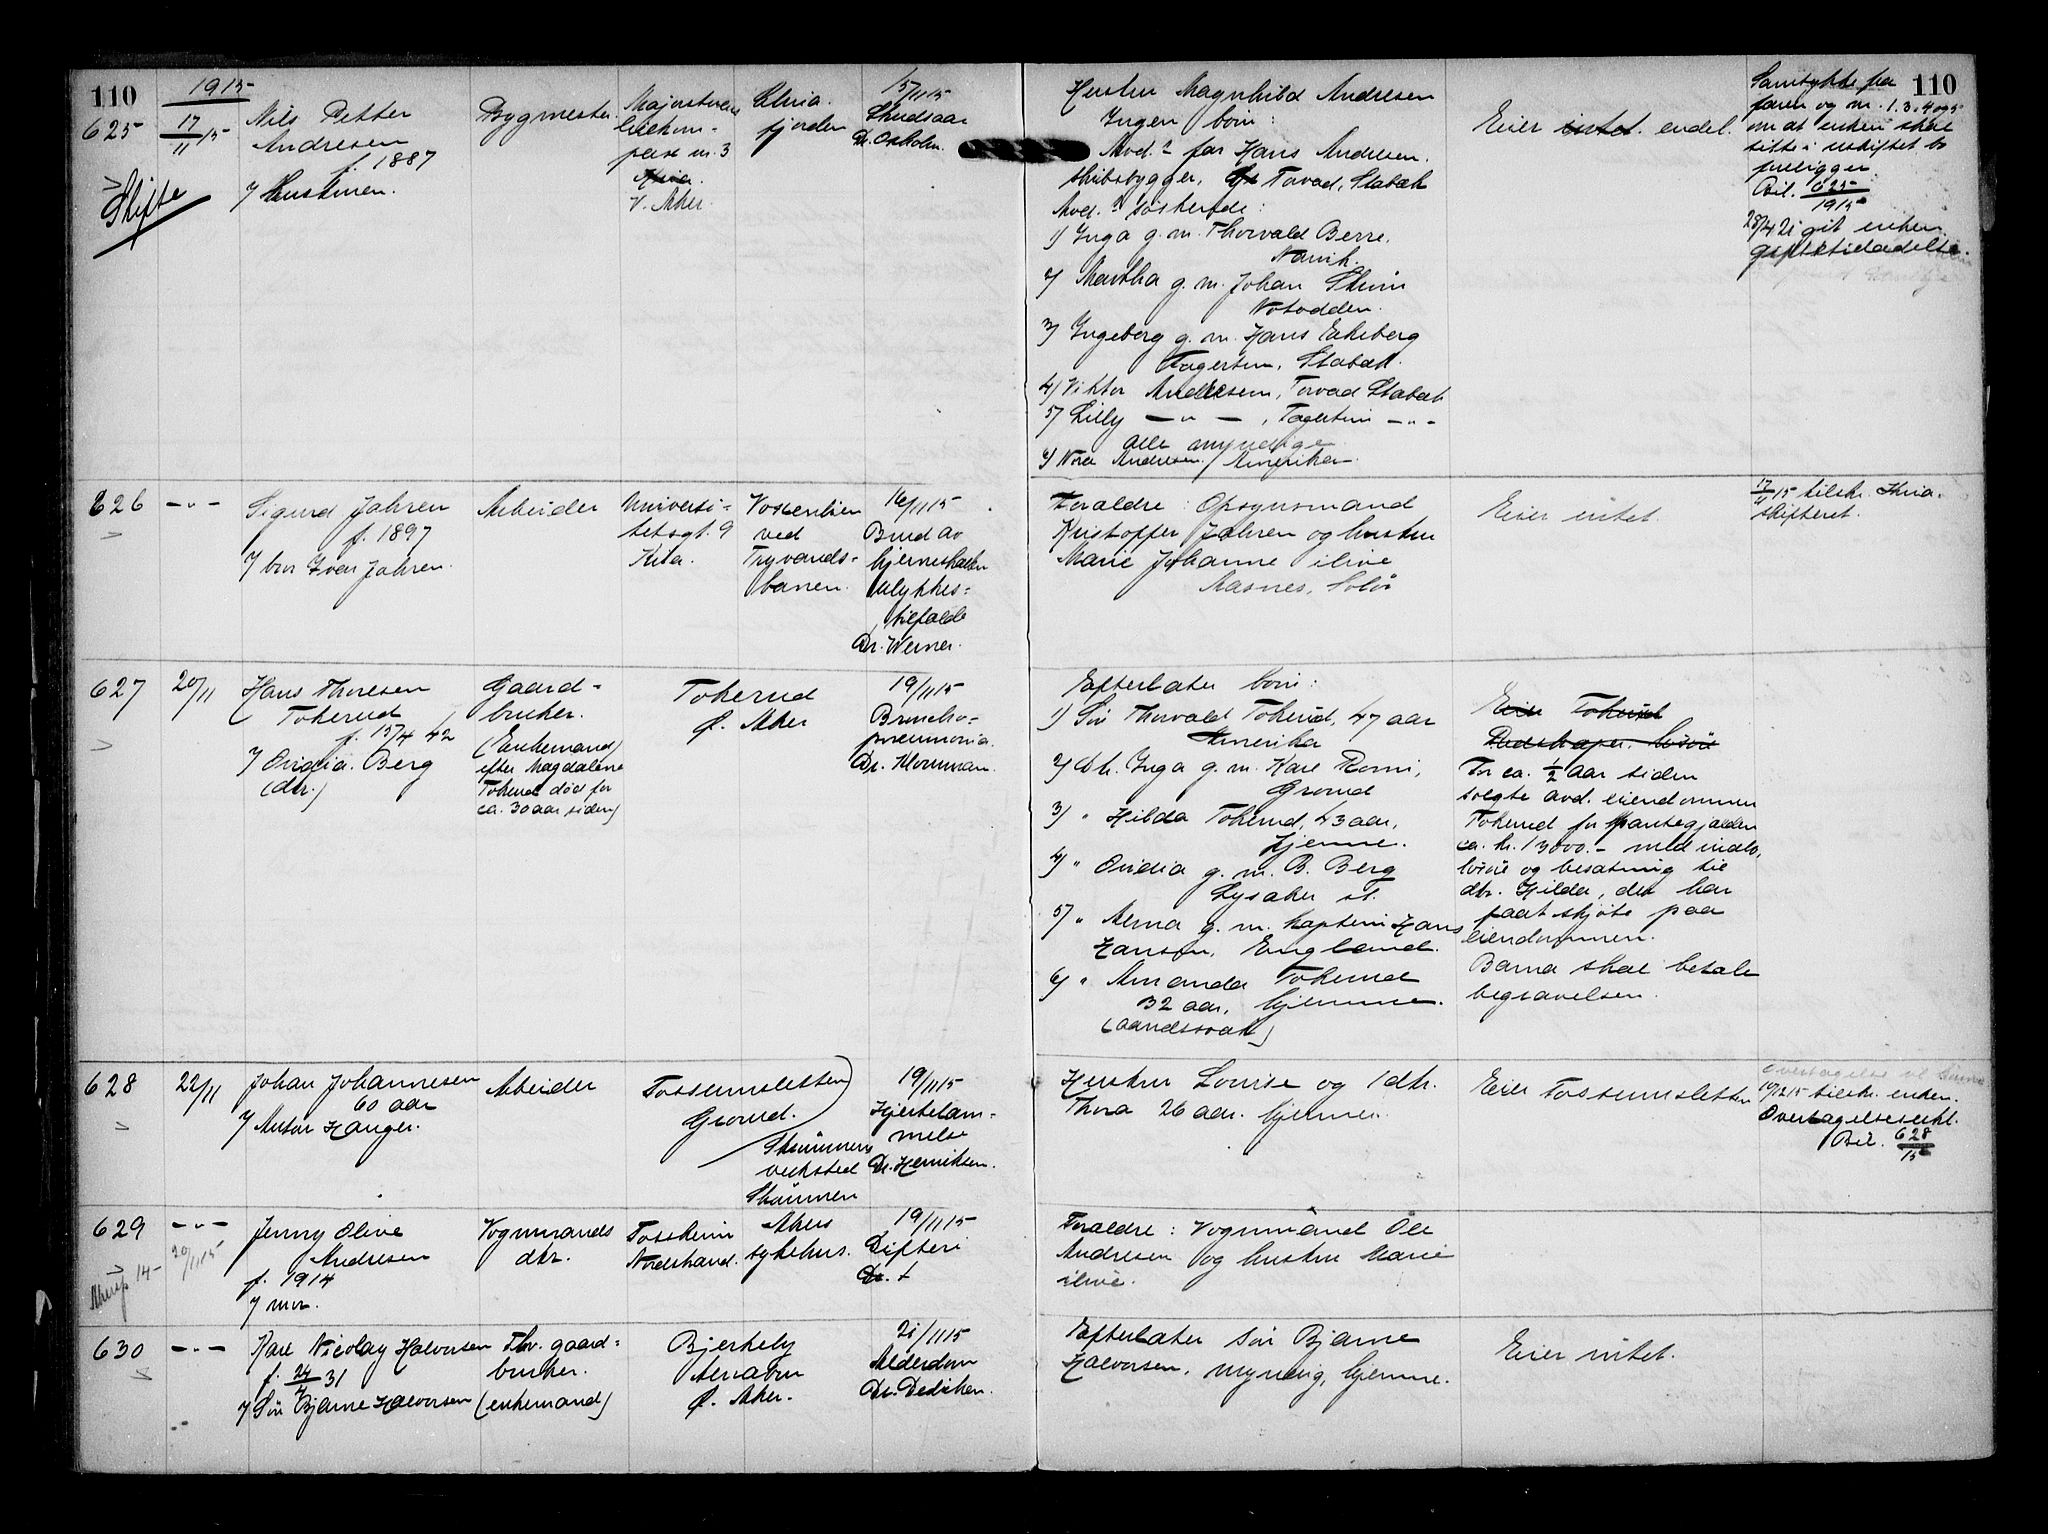 110
1915
110
625
17/11 15
Nils Petter
Andresen
f. 1887
Hustruen.
Skifte
Bygmester
Majorstuen
pass nr. 3
V. Aker.
Chria.
fjorden
15/11 15
Skudsaar
Hustru Magnhild Andresen
Ingen børn:
Avd.s far Hans Andresen.
skibsbygger, Torvad, Stabæk
Avd.s søskende:
1) Inga g. m. Thorvald Berre,
Narvik.
2) Martha g. m. Johan
Notodden.
3) Ingeborg g. m. Hans Ekeberg
Stabæk.
4) Viktor Andresen, Torvad Stabæk
5) Lilly — " — , — " —
alle myndige
6) Nora Andresen, Amerika
Eier intet. endel.
Samtykke fra
faren og nr. 1.3.4 og 5
om at enken skal
sitte i uskiftet bo
foreligger
Bil. 625/1915
28/4 21 git enken
626
— " —
Sigurd Jahren
f. 1897
bror Iver Jahren.
Arbeider
Universi-
tetsgt. 9
Kria.
Voxenlien
ved
Tryvands-
banen.
16/11 15
Brud av
hjerneskallen
ulykkes-
tilfælde
Dr. Werner.
Forældre: Opsynsmand
Kristoffer Jahren og hustru
Marie Johanne ilive
Aasnes, Solør
Eier intet.
17/11 15 tilskr. Kria.
skifteret.
627
20/11
Hans Thoresen
Tokerud
f. 15/4 42
Ovidia Berg
(dtr.)
Gaard-
bruker.
(Enkemand
efter Magdalene
Tokerud død for
ca. 30 aar siden)
Tokerud
Ø. Aker
19/11 15
Broncho-
pneumonia.
Efterlater børn:
1) Søn Thorvald Tokerud, 47 aar
Amerika
2) Dtr. Inga g. m. Karl
Grorud
3) " Hilda Tokerud, 43 aar,
hjemme.
4) " Ovidia g. m. B. Berg
Lysaker st.
5) " Alma g. m. kaptein Hans
Hansen, England.
6) " Amanda Tokerud
32 aar, hjemme.
(aandssvak)
Eier Tokerud
Redskaper. løsøre
For ca. 1/2 aar siden
solgte avd. eiendommen
Tokerud for pantegjælden
ca. kr. 13000.- med indbo,
løsøre og besætning til
dtr. Hilda, der har
faat skjøte paa
eiendommen.
Barna skal betale
begravelsen.
628
22/11
Johan Johannesen
60 aar
Anton Hauger.
Arbeider
Fossumsletten
Grorud.
Strømmens
verksted
Strømmen
19/11 15
Hjertelam-
melse
Dr. Henriksen.
Hustru Lovise og 1 dtr.
Thora 26 aar. hjemme.
Eier Fossumsletten
10/12 15 tilskr. enken.
Overtagelseserkl.
Bil. 628/15
629
— " —
20/11 15
Jenny Olive
Andresen
f. 1914
mor.
Vognmands
dtr.
Fossheim
Nordstrand.
Akers
sykehus.
19/11 15
Difteri
Forældre: Vognmand Ole
Andresen og hustru Marie
ilive.
630
— " —
Karl Nicolay Halvorsen
f. 24/4 31
Søn Bjarne Halvorsen
Fhv. gaard-
bruker.
(enkemand)
Bjerkely
Alnabru
Ø. Aker.
21/11 15
Alderdom
Dr. Dedichen.
Efterlater søn Bjarne
Halvorsen, myndig, hjemme.
Eier intet.